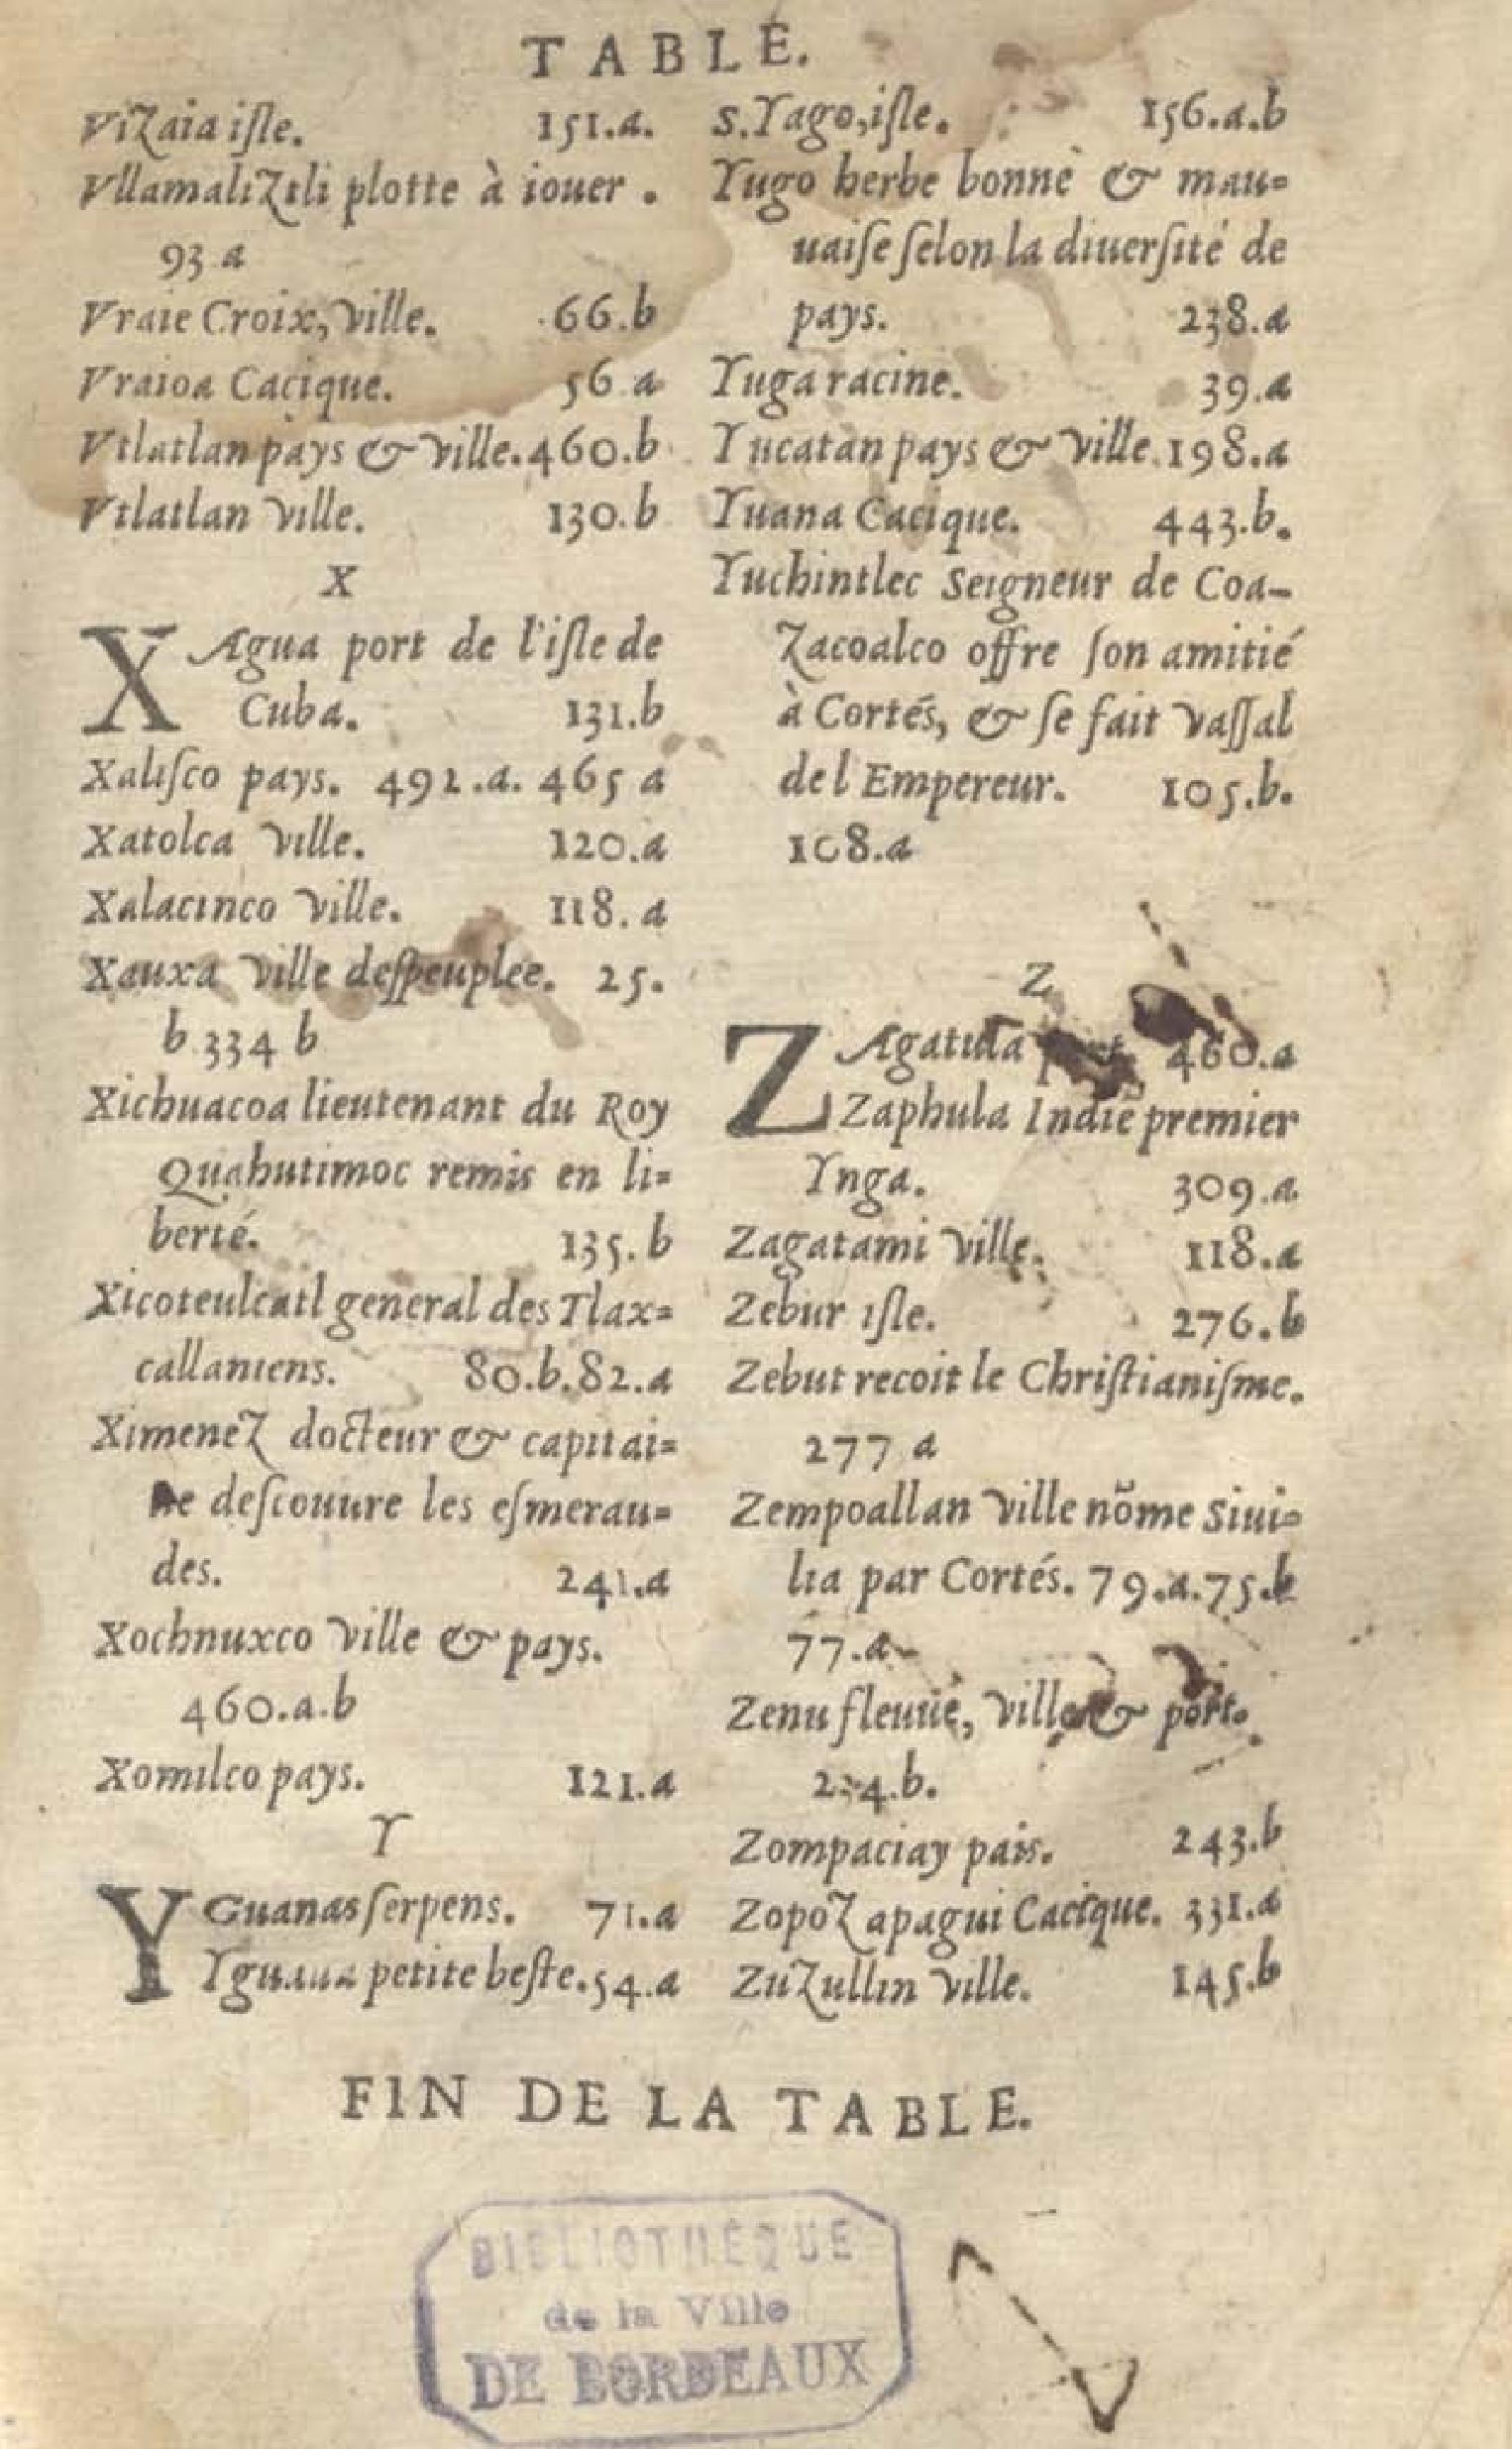 TABLE.
Vizaia isle. 151.a.
Vllamaliztli plotte à iouer .
93 a
Vraie Croix, ville. 66.b
Vraioa Cacique. 56 a
Vtlatlan pays & ville. 460.b
Vtlatlan ville. 130.b
X
XAgua port de l'isle de
Cuba. 131.b
Xalisco pays. 492.a. 465 a
Xatolca ville. 120.a
Xalacinco ville. 118. a
Xauxa ville despeuplee. 25.
b 334 b
Xichuacoa lieutenant du Roy
Quahutimoc remis en li=
berté. 135. b
Xicoteulcatl general des Tlax=
callaniens. 80.b.82.a
Ximenez docteur & capitai=
ne descouure les esmerau=
des. 241.a
Xochnuxco ville & pays.
460.a.b
Xomilco pays. 121.a
Y
YGuanas serpens. 71.a
Yguana petite beste. 54.a
S.Yago, isle. 156.a.b
Yugo herbe bonne & mau=
uaise selon la diuersité de
pays. 238.a
Yuga racine. 39.a
Yucatan pays & ville. 198.a
Yuana Cacique. 443.b.
Yuchintlec Seigneur de Coa-
zacoalco offre son amitié
à Cortés, & se fait vassal
de l Empereur. 105.b.
108.a
Z
ZAgatula 460.a
Zaphula Indié premier
Ynga. 309.a
Zagatami ville. 118.a
Zebur isle. 276.b
Zebut recoit le Christianisme.
277 a
Zempoallan ville nõme Siui=
lia par Cortés. 79.a.75.b
77.a
Zenu fleuue, ville & port.
Zompaciay pais. 243.b
Zopozapagui Cacique. 331.a
Zuzullin ville. 145.b
FIN DE LA TABLE.
BIBLIOTHÈQUE
de la Ville
DE BORDEAUX